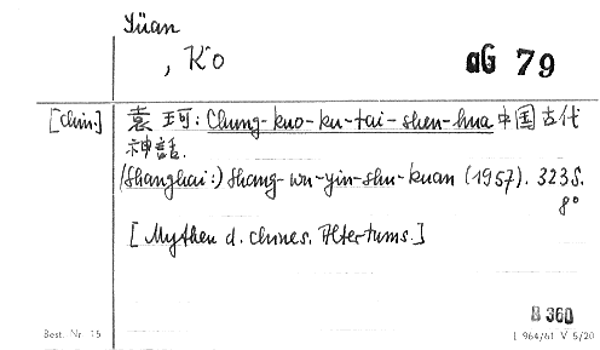 Yüan
, K'o
aG 79
[chin.] 袁珂: Chung-kuo-ku-tai-shen-hua 中国古代
神話.
(Shanghai:) Shang-wu-yin-shu-kuan (1957). 323 S.
8°
[Mythen d. chines. Altertums.]
B 360
Best. Nr. 15
I 964/61 V 5/20